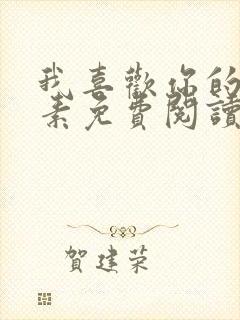 我喜歡你的
素免費閱讀
賀建荣